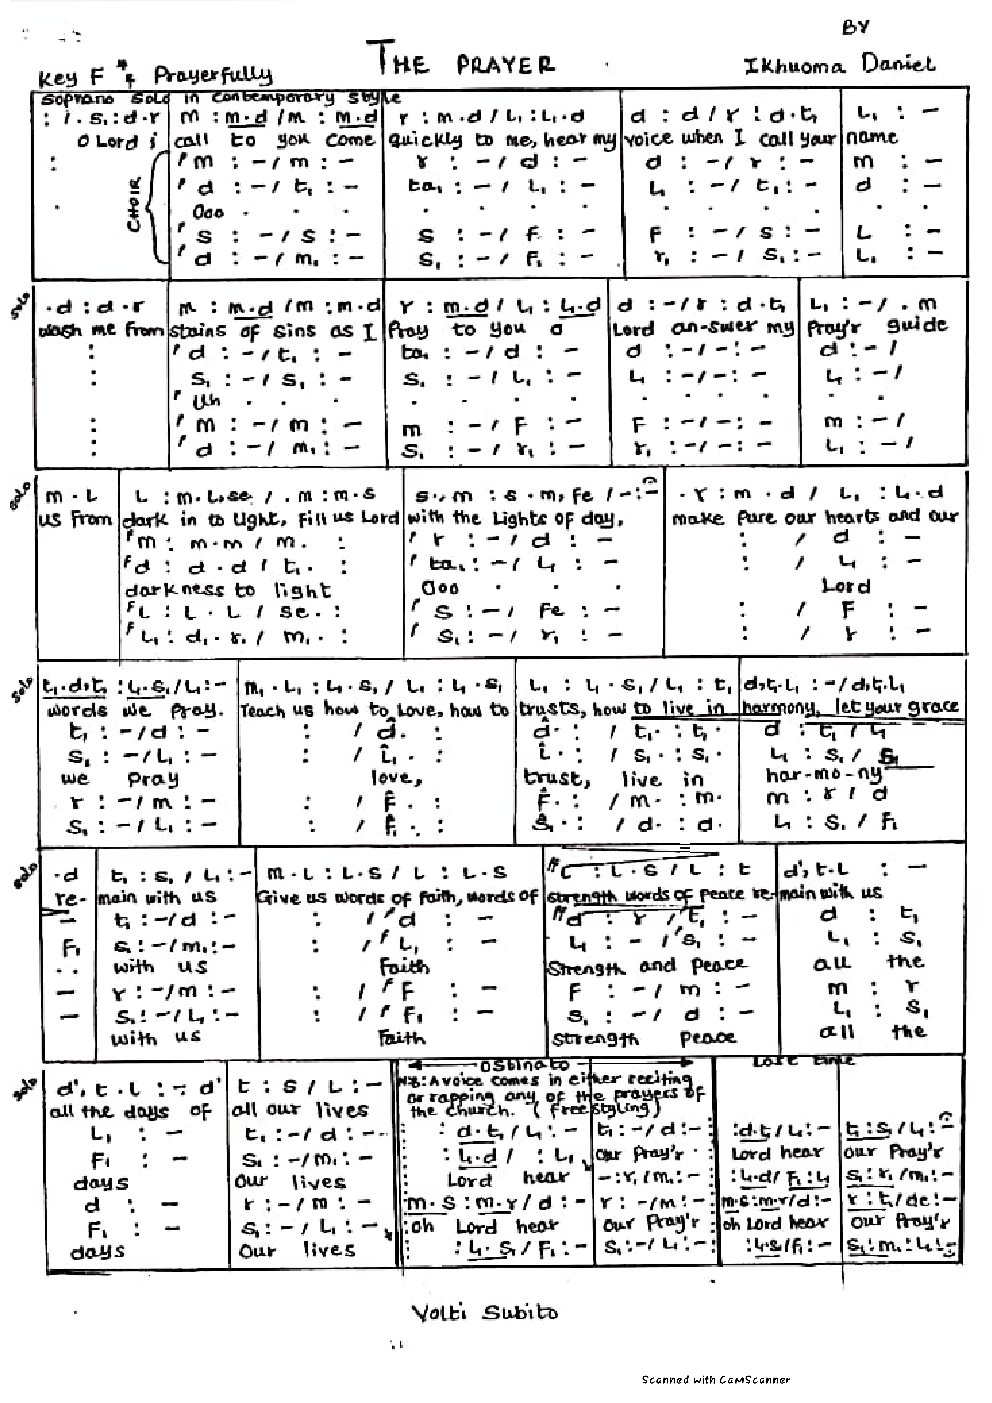 BY
THE PRAYER
Key F# Prayerfully
Ikhuoma Daniel
Soprano Solo in Contemporary style
: / . s₁ : d . r | m : m . d / m : m . d | r : m . d / L₁ : L₁ . d | d : d / r : d . t₁ | L₁ : –
O Lord i | call to you come | quickly to me, hear my | voice when I call your | name
: | m : – / m : – | r : – / d : – | d : – / r : – | m : –
CHOIR
d : – / t₁ : – | ta₁ : – / L₁ : – | L₁ : – / t₁ : – | d : –
Ooo . . . | . . . . | . . . . | . .
s : – / s : – | s : – / F : – | F : – / s : – | L : –
d : – / m₁ : – | s₁ : – / F₁ : – | r₁ : – / s₁ : – | L₁ : –
solo
. d : d . r | m : m . d / m : m . d | r : m . d / L₁ : L₁ . d | d : – / r : d . t₁ | L₁ : – / . m
wash me from | stains of sins as I | Pray to you o | Lord an-swer my | Pray'r guide
: | d : – / t₁ : – | ta₁ : – / d : – | d : – / – : – | d : – /
: | s₁ : – / s₁ : – | s₁ : – / L₁ : – | L₁ : – / – : – | L₁ : – /
Uh . . . | . . . . | . . . . | . .
: | m : – / m : – | m : – / F : – | F : – / – : – | m : – /
: | d : – / m₁ : – | s₁ : – / r₁ : – | r₁ : – / – : – | L₁ : – /
solo
m . L | L : m . L, se / . m : m . s | s . , m : s . m, Fe / – : – | . r : m . d / L₁ : L₁ . d
us from | dark in to light, Fill us Lord | with the Lights of day, | make pure our hearts and our
m : m . m / m . : | r : – / d : – | : / d : –
d : d . d / t₁ . : | ta₁ : – / L₁ : – | : / L₁ : –
darkness to light | Ooo . . . | Lord
L : L . L / se . : | s : – / Fe : – | : / F : –
L₁ : d₁ . r₁ / m₁ . : | s₁ : – / r₁ : – | : / r : –
solo
t₁ . d, t₁ : L₁ . s₁ / L₁ : – | m₁ . L₁ : L₁ . s₁ / L₁ : L₁ . s₁ | L₁ : L₁ . s₁ / L₁ : t₁ | d, t₁ . L₁ : – / d, t₁ . L₁
words we pray. | Teach us how to Love, how to | trusts, how to live in | harmony, let your grace
t₁ : – / d : – | : / d . : | d . : / t₁ . : t₁ . | d : t₁ / L₁
s₁ : – / L₁ : – | : / L₁ . : | L . : / s₁ . : s₁ . | L₁ : s₁ / s₁
we pray | love, | trust, live in | har-mo-ny
r : – / m : – | : / F . : | F . : / m . : m . | m : r / d
s₁ : – / L₁ : – | : / F₁ . : | s₁ . : / d . : d . | L₁ : s₁ / F₁
solo
. d | t₁ : s₁ / L₁ : – | m . L : L . s / L : L . s | L : L . s / L : t | d', t . L : –
re- | main with us | Give us words of faith, words of | strength words of peace re- | main with us
– | t₁ : – / d : – | : / d : – | d : r / t₁ : – | d : t₁
F₁ | s₁ : – / m₁ : – | : / L₁ : – | L₁ : – / s₁ : – | L₁ : s₁
. . | with us | Faith | Strength and peace | all the
– | r : – / m : – | : / F : – | F : – / m : – | m : r
– | s₁ : – / L₁ : – | : / F₁ : – | s₁ : – / d : – | L₁ : s₁
with us | Faith | strength Peace | all the
ostinato
Last time
solo
d', t . L : – : d' | t : s / L : –
N:B: A voice comes in either reciting
or rapping any of the prayers of
the church. ( Free styling)
all the days of | all our lives
L₁ : – | t₁ : – / d : – | : d . t₁ / L₁ : – | t₁ : – / d : – | : d . t₁ / L₁ : – | t₁ : s₁ / L₁ : –
F₁ : – | s₁ : – / m₁ : – | : L₁ . d / : L₁ | our Pray'r | Lord hear | our Pray'r
days | our lives | Lord hear | – : r₁ / m₁ : – | : L₁ . d / F₁ : L₁ | s₁ : r₁ / m₁ : –
d : – | r : – / m : – | m . s : m . r / d : – | r : – / m : – | m . s : m . r / d : – | r : t₁ / de : –
F₁ : – | s₁ : – / L₁ : – | oh Lord hear | our Pray'r | oh Lord hear | our Pray'r
days | our lives | : L₁ . s₁ / F₁ : – | s₁ : – / L₁ : – | : L₁ . s₁ / F₁ : – | s₁ : m₁ : L₁ : –
Volti Subito
Scanned with CamScanner